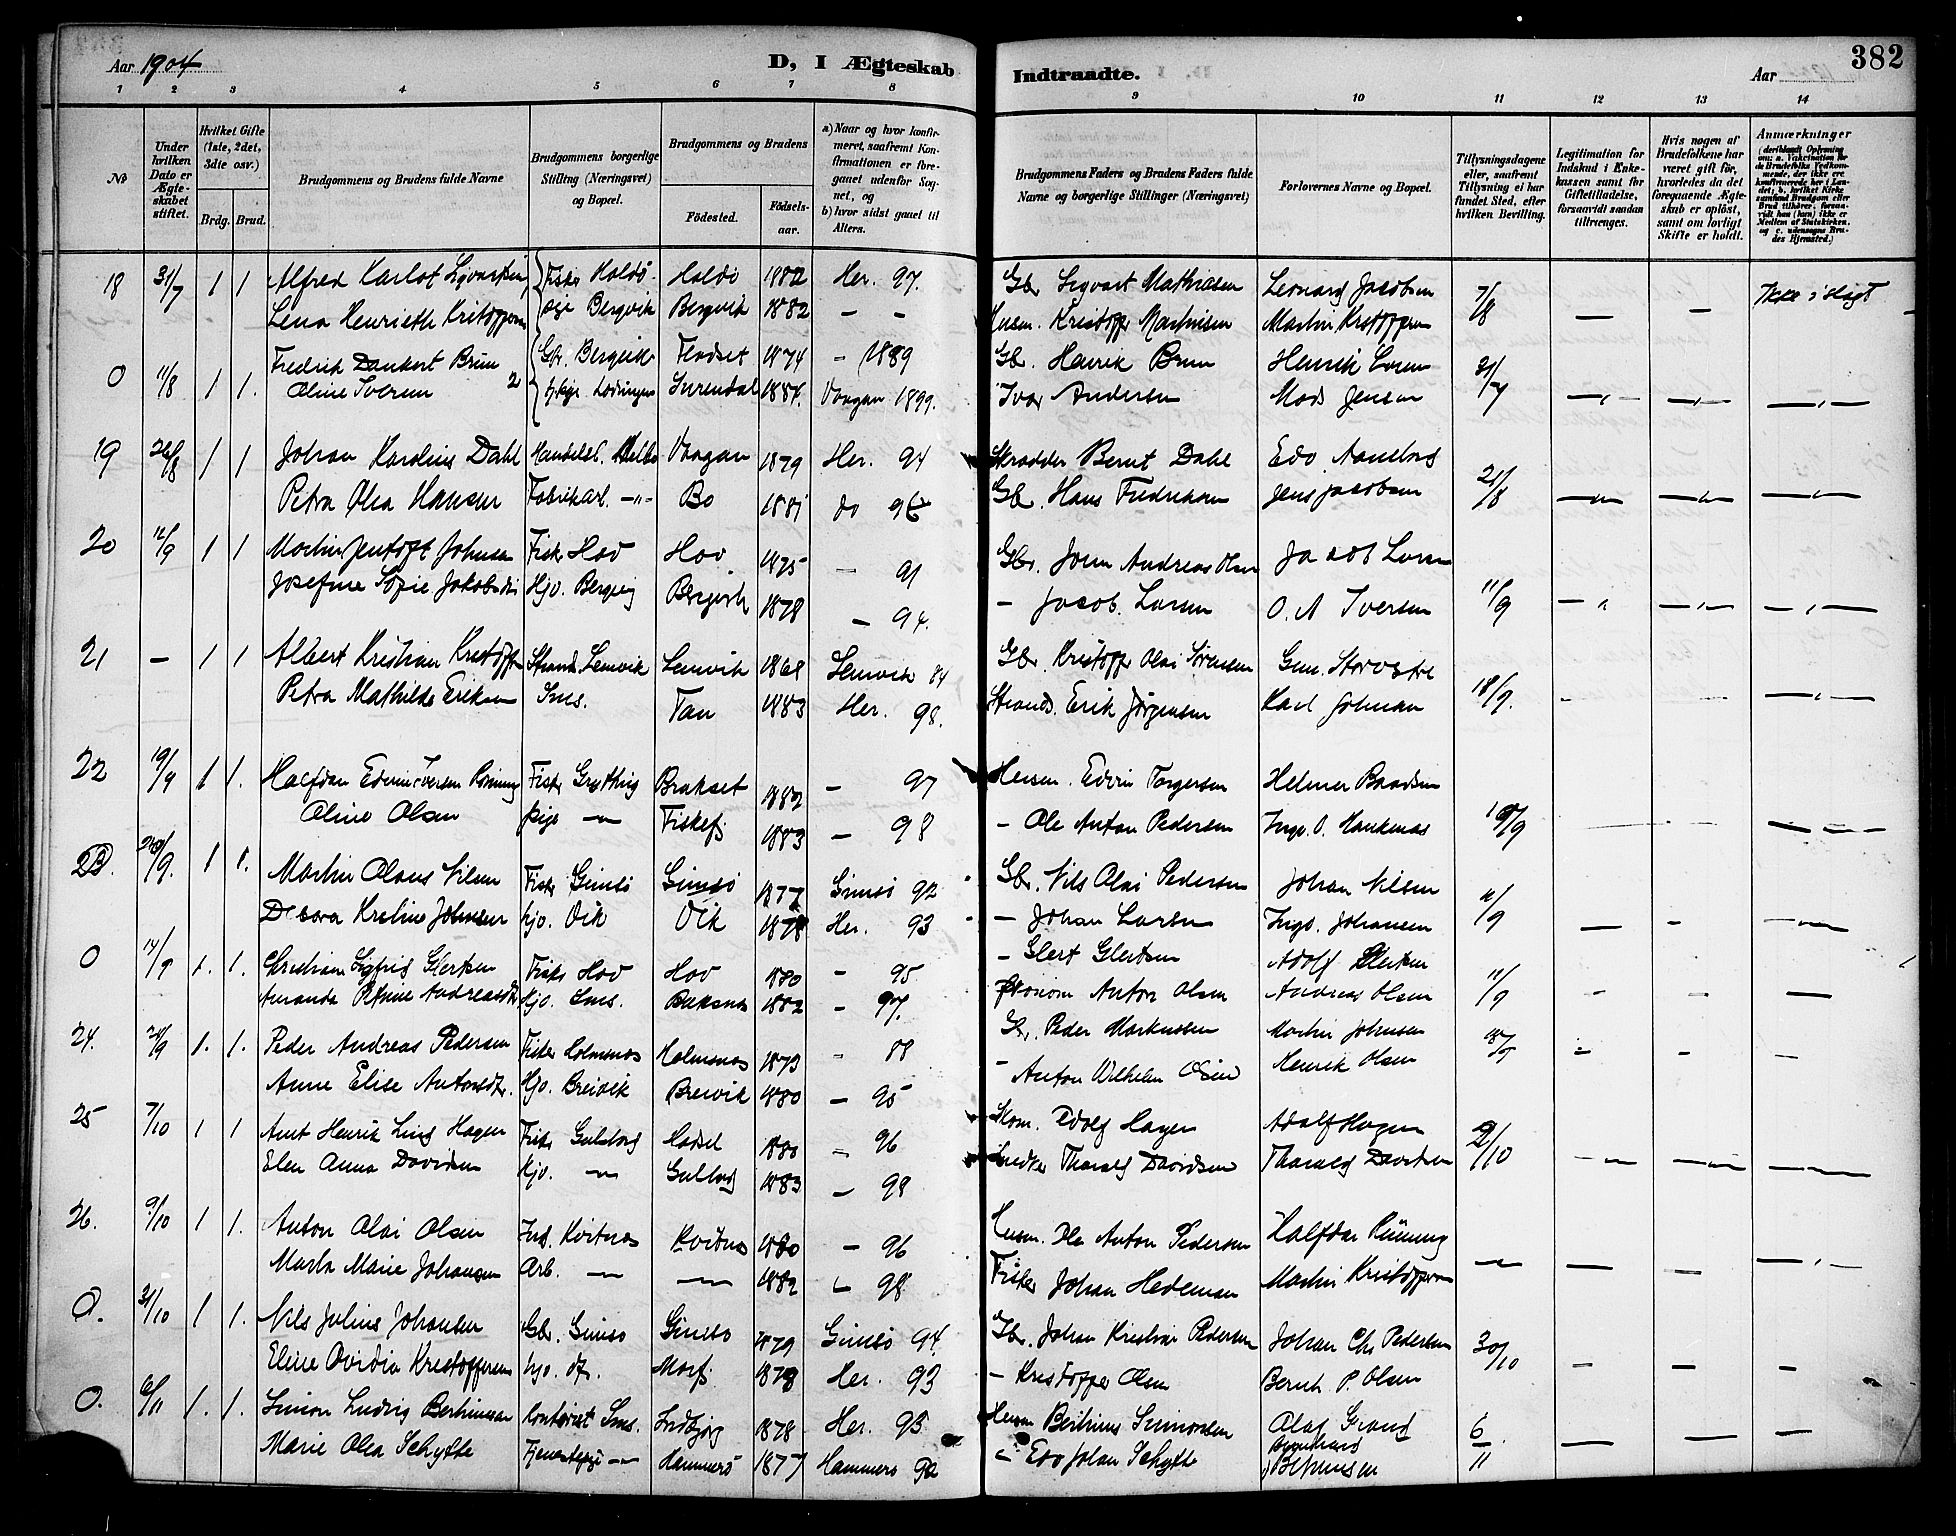 Aar 1904
D, I Ægteskab Indtraadte.
Aar
382
1 2 3 4 5 6 7 8 9 10 11 12 13 14
No
Under hvilken Dato er Ægteskabet stiftet.
Hvilket Gifte (1ste, 2det, 3die osv.)
Brdg. Brud.
Brudgommens og Brudens fulde Navne
Brudgommens borgerlige Stilling (Næringsvei) og Bopæl.
Brudgommens og Brudens
Fødested. Fødselsaar.
a) Naar og hvor konfirmeret, saafremt Konfirmationen er foregaaet udenfor Sognet, og
b) hvor sidst gaaet til Alters.
Brudgommens Faders og Brudens Faders fulde Navne og borgerlige Stillinger (Næringsvei)
Forlovernes Navne og Bopæl.
Tillysningsdagene eller, saafremt Tillysning ei har fundet Sted, efter hvilken Bevilling.
Legitimation for Indskud i Enkekassen samt for Giftetilladelse, forsaavidt saadan tiltrænges.
Hvis nogen af Brudefolkene har været gift før, hvorledes da det foregaaende Ægteskab er opløst, samt om lovligt Skifte er holdt.
Anmærkninger
18 31/7 1 1 Alfred Karlot Sigvartsen Fisker Holdö Holdö 1882 Her. 97. Gbr Sigvart Mathiasen Leonard Jacobsen 7/8 — — Ikke i slægt
Lena Henriette Kristoffersen pige Bergvik Bergvik 1882 — — Husm. Kristoffer Martinsen Martin Kristoffersen
0 11/8 1 1. Fredrik Dankert Brun Gbr. Bergvik Fladset 1874 — 1889 Gb. Henrik Brun Henrik Lorsen 31/7
Oline Iversen pige Lødingen Surendal 1884. Vaagan 1899. Ivar Andersen Mads Jensen
19 26/8 1 1 Johan Karolius Dahl Handelsb. Melbo Vaagan 1879 Her. 94 Skrædder Bernt Dahl Edv. 21/8
Petra Olea Hansen Fabrikarb. —"— Bö 1881 do 96 Gb. Hans Fredriksen Jens Jacobsen
20 12/9 1 1 Martin Jentoft Johnsen Fisk Hov Hov 1875 — 91 Gbr. John Andreas Olsen Jacob Larsen 11/9
Josefine Sofie Jakobsdtr Hjv. Bergvig Bergvik 1878 — 94. — Jacob Larsen O. A Iversen
21 — 1 1 Albert Kristian Kristoffers Strands. Lemvik Lemvik 1868 Lemvik 84 Gbr. Kristoffer Olai Sørensen Gun. 18/9.
Petra Mathilde Eriksen Sms. Tan 1883 Her. 98. Strands. Erik Jørgensen Karl Johnsen
22 19/9 1 1. Halfdan Edvin Iversen Rönning Fisk Grytting Brakset 1882 — 97 Husm. Edvin Torgersen Helmer Baardsen 18/9
Oline Olsen pige —"— Fiskef. 1883 — 98 — Ole Anton Pedersen Ingv. O. Haukenæs
23. /9. 1 1. Martin Olaus Nilsen Fisk Gimsö Gimsö 1877 Gimsö 92 Gb. Nils Olai Pedersen Johan Nilsen 11/9
Debora Kristine Johnsen hjv. Vik Vik 1878 Her. 93 — Johan Larsen Ingv. Johansen
0 14/9 1. 1. Christian Sigfrid Glertsen Fisk Hov Hov 1880 — 95 — Glert Glertsen Adolf Glertsen 11/9
Amanda Petrine Andreasdtr Hjv. Sms. Buksnæs 1882 — 97. Økonom Anton Olsen Andreas Olsen
24. 24/9 1. 1. Peder Andreas Pedersen Fisker Holmnæs Holmsnæs 1873 " 88 Gb. Peder Markussen Martin Johnsen 18/9
Anne Elise Antonsdtr. Hjv. Breivik Breivik 1880 — 95 — Anton Wilhelm Olsen Henrik Olsen
25 7/10 1 1 Arnt Henrik Lind Hagen Fisk Gulbrog Hadsel 1880 " 96 Skom. Edolf Hagen Adolf Hagen 2/10
Elen Anna Davidsen hjv. —"— Gulbrog 1883 — 98 Snedker Tharald Davidsen Tharald Davidsen
26. 9/10 1 1. Anton Olai Olsen Ind. Kvitnæs Kvitnæs 1880 — 96 Husm. Ole Anton Pedersen Halfdan Rönning
Marta Marie Johansen Arb. —"— —"— 1882 — 98 Fisker Johan Hedeman Martin Kristoffersen
0. 31/10 1 1. Nils Julius Johansen Gbr. Gimsö Gimsö 1879 Gimsö 94. Gbr. Johan Kristian Pedersen Johan Chr Pedersen 30/10
Eline Ovidia Kristoffersen hjv. df. Morf. 1878 Her. 93 — Kristoffer Olsen Bernh. P. Olsen
0. 6/11 1. 1. Simon Ludvig Berthinsen Kontorist Sms. Indbjörg 1878 Her. 93 Husm Berthinus Simonsen Olaf Strand 6/11
Marie Olea Schytte Tjenestepige —"— Hammerö 1877 Hammerö 92 — Edv Johan Schytte Bernhard Berthinsen